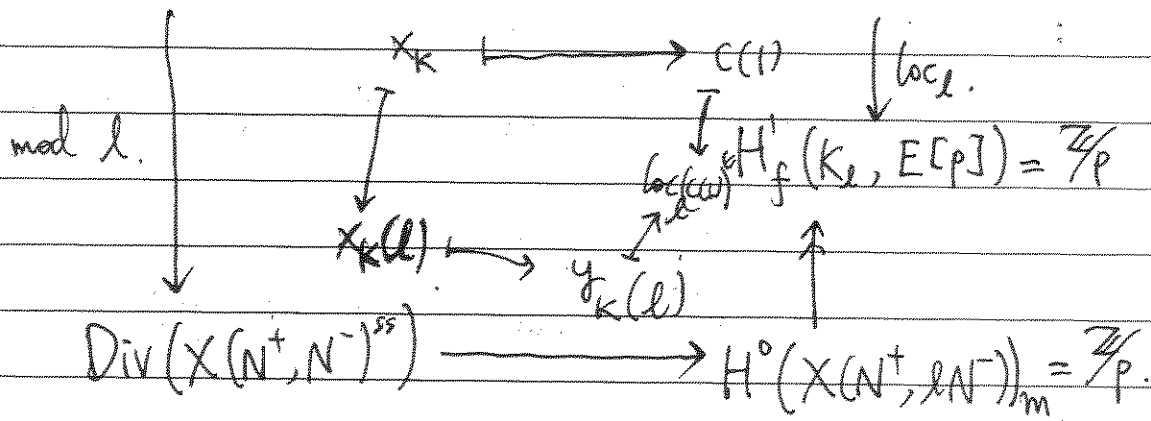 x_K ⟼ c(1) ↓ loc_l.
mod l.
loc_l(c(1)) ∈ H^1_f(K_l, E[p]) = Z/p
x_K(l) ⟼ y_K(l)
Div(X(N^+, N^-)^{ss}) ⟶ H^0(X(N^+, lN^-))_m = Z/p.